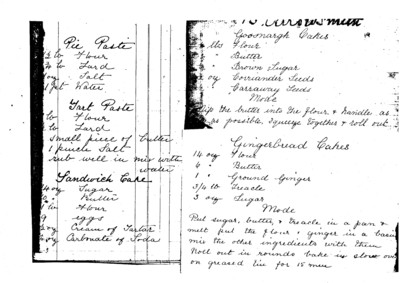 Pie Paste
lb Flour
lb Lard
oz Salt
1 pt Water
Tart Paste
lb Flour
lb Lard
small piece of butter
1 pinch Salt
rub well in mix with
water
Sandwich Cake
oz Sugar
Butter
Flour
9 eggs
oz Cream of Tartar
oz Carbonate of Soda
Goosnargh Cakes
lbs Flour
Butter
" Brown Sugar
oz Corriander Seeds
" Carraway Seeds
Mode
the butter into the flour & handle as
as possible, squeeze together & roll out.
Gingerbread Cakes
14 oz Flour
6 " Butter
1 " Ground Ginger
3/4 lb Treacle
3 oz Sugar
Mode
Put sugar, butter, & treacle in a pan &
melt put the flour & ginger in a basin
mix the other ingredients with them
Roll out in rounds bake in slow
on greased tin for 15 min